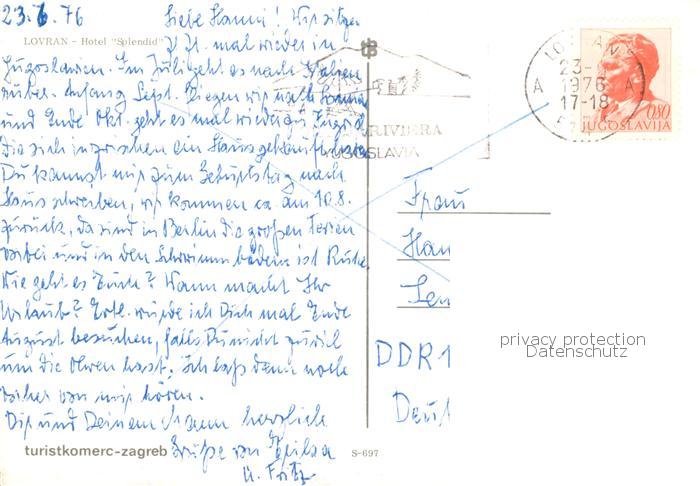 23.6.76
Liebe Hanni! Wir sitzen
LOVRAN - Hotel "Splendid"
z. Zt. mal wieder in
Jugoslawien. Im Juli geht es nach Italien
rüber. Anfang Sept. fliegen wir nach
und Ende Okt. geht es mal wieder zu Ingrid
die sich inzwischen ein Haus gekauft
Du kannst mir zum Geburtstag nach
Haus schreiben, wir kommen ca. am 10.8.
zurück, da sind in Berlin die großen Ferien
vorbei und in den Schwimmbädern ist Ruhe.
Wie geht es Euch? Wann macht Ihr
Urlaub? Evtl. würde ich Dich mal Ende
August besuchen, falls Du nicht zuviel
um die Ohren hast. Ich laß dann noch
vorher von mir hören.
Dir und Deinem Mann herzlich
Grüße von
u. Fritz
turistkomerc-zagreb
S-697
RIVIERA
JUGOSLAVIA
23-
1976
17-18
A A
0,80
JUGOSLAVIJA
Frau
Han
Len
DDR 1
Deut
privacy protection
Datenschutz